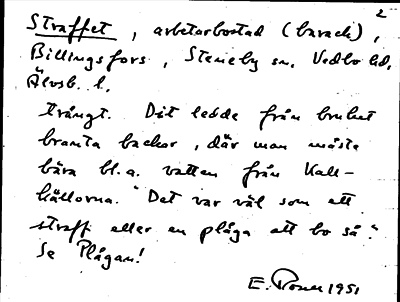 2
Straffet, arbetarbostad (barack),
Billingsfors, Steneby sn, Vedbo hd,
Älvsb. l.
Trångt. Dit ledde från bruket
branta backar, där man måste
bära bl.a. vatten från Kall-
källorna. "Det var väl som ett
straff eller en plåga att bo så."
Se Plågan!
E. 1951